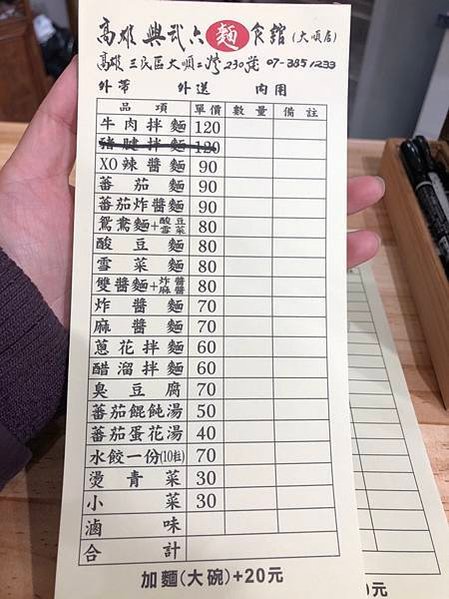 高雄興武六麵食館(大順店)
高雄三民區大順二路230號 07-3851233
外帶 外送 內用
品項 單價 數量 備註
牛肉拌麵 120
豬腱拌麵 120
XO辣醬麵 90
蕃茄麵 90
蕃茄炸醬麵 90
鴛鴦麵+酸豆雪菜 80
酸豆麵 80
雪菜麵 80
雙醬麵+炸醬麻醬 80
炸醬麵 70
麻醬麵 70
蔥花拌麵 60
醋溜拌麵 60
臭豆腐 70
蕃茄餛飩湯 50
蕃茄蛋花湯 40
水餃一份(10粒) 70
燙青菜 30
小菜 30
滷味
合計
加麵(大碗)+20元
元